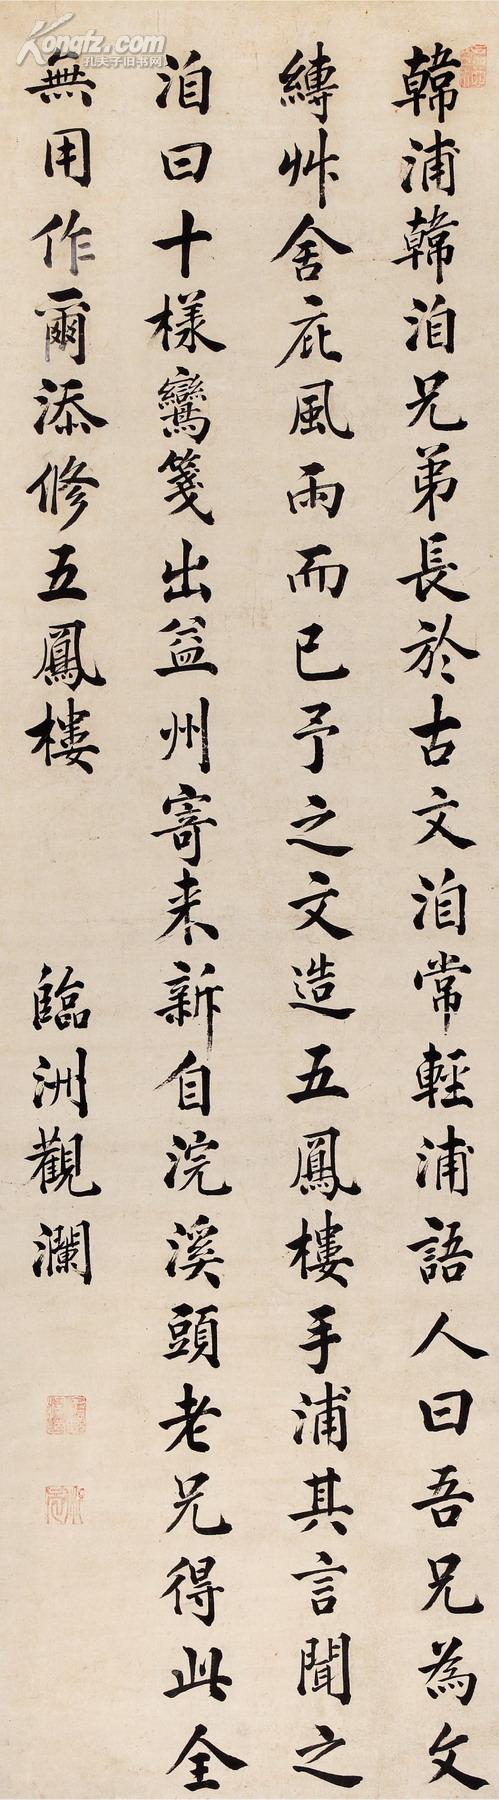 韓浦韓洎兄弟長於古文洎常輕浦語人曰吾兄為文
縳艸舍庇風雨而已予之文造五鳳樓手浦其言聞之
洎曰十樣鸞箋出益州寄来新自浣溪頭老兄得此全
無用作爾添修五鳳樓
臨洲觀瀾
Kongfz.com
孔夫子旧书网